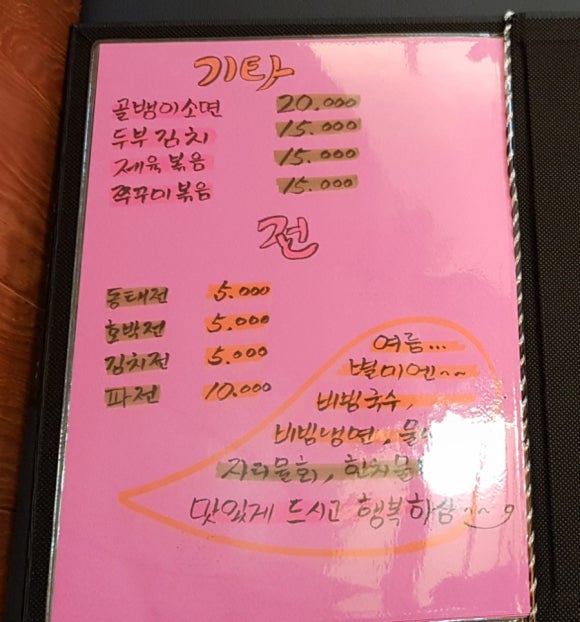 기타
골뱅이소면 20.000
두부김치 15.000
제육볶음 15.000
쭈꾸미볶음 15.000
전
동태전 5.000
호박전 5.000
김치전 5.000
파전 10.000
여름...
별미엔~~
비빔국수,
비빔냉면,
자리물회, 한치물
맛있게 드시고 행복하삼~~